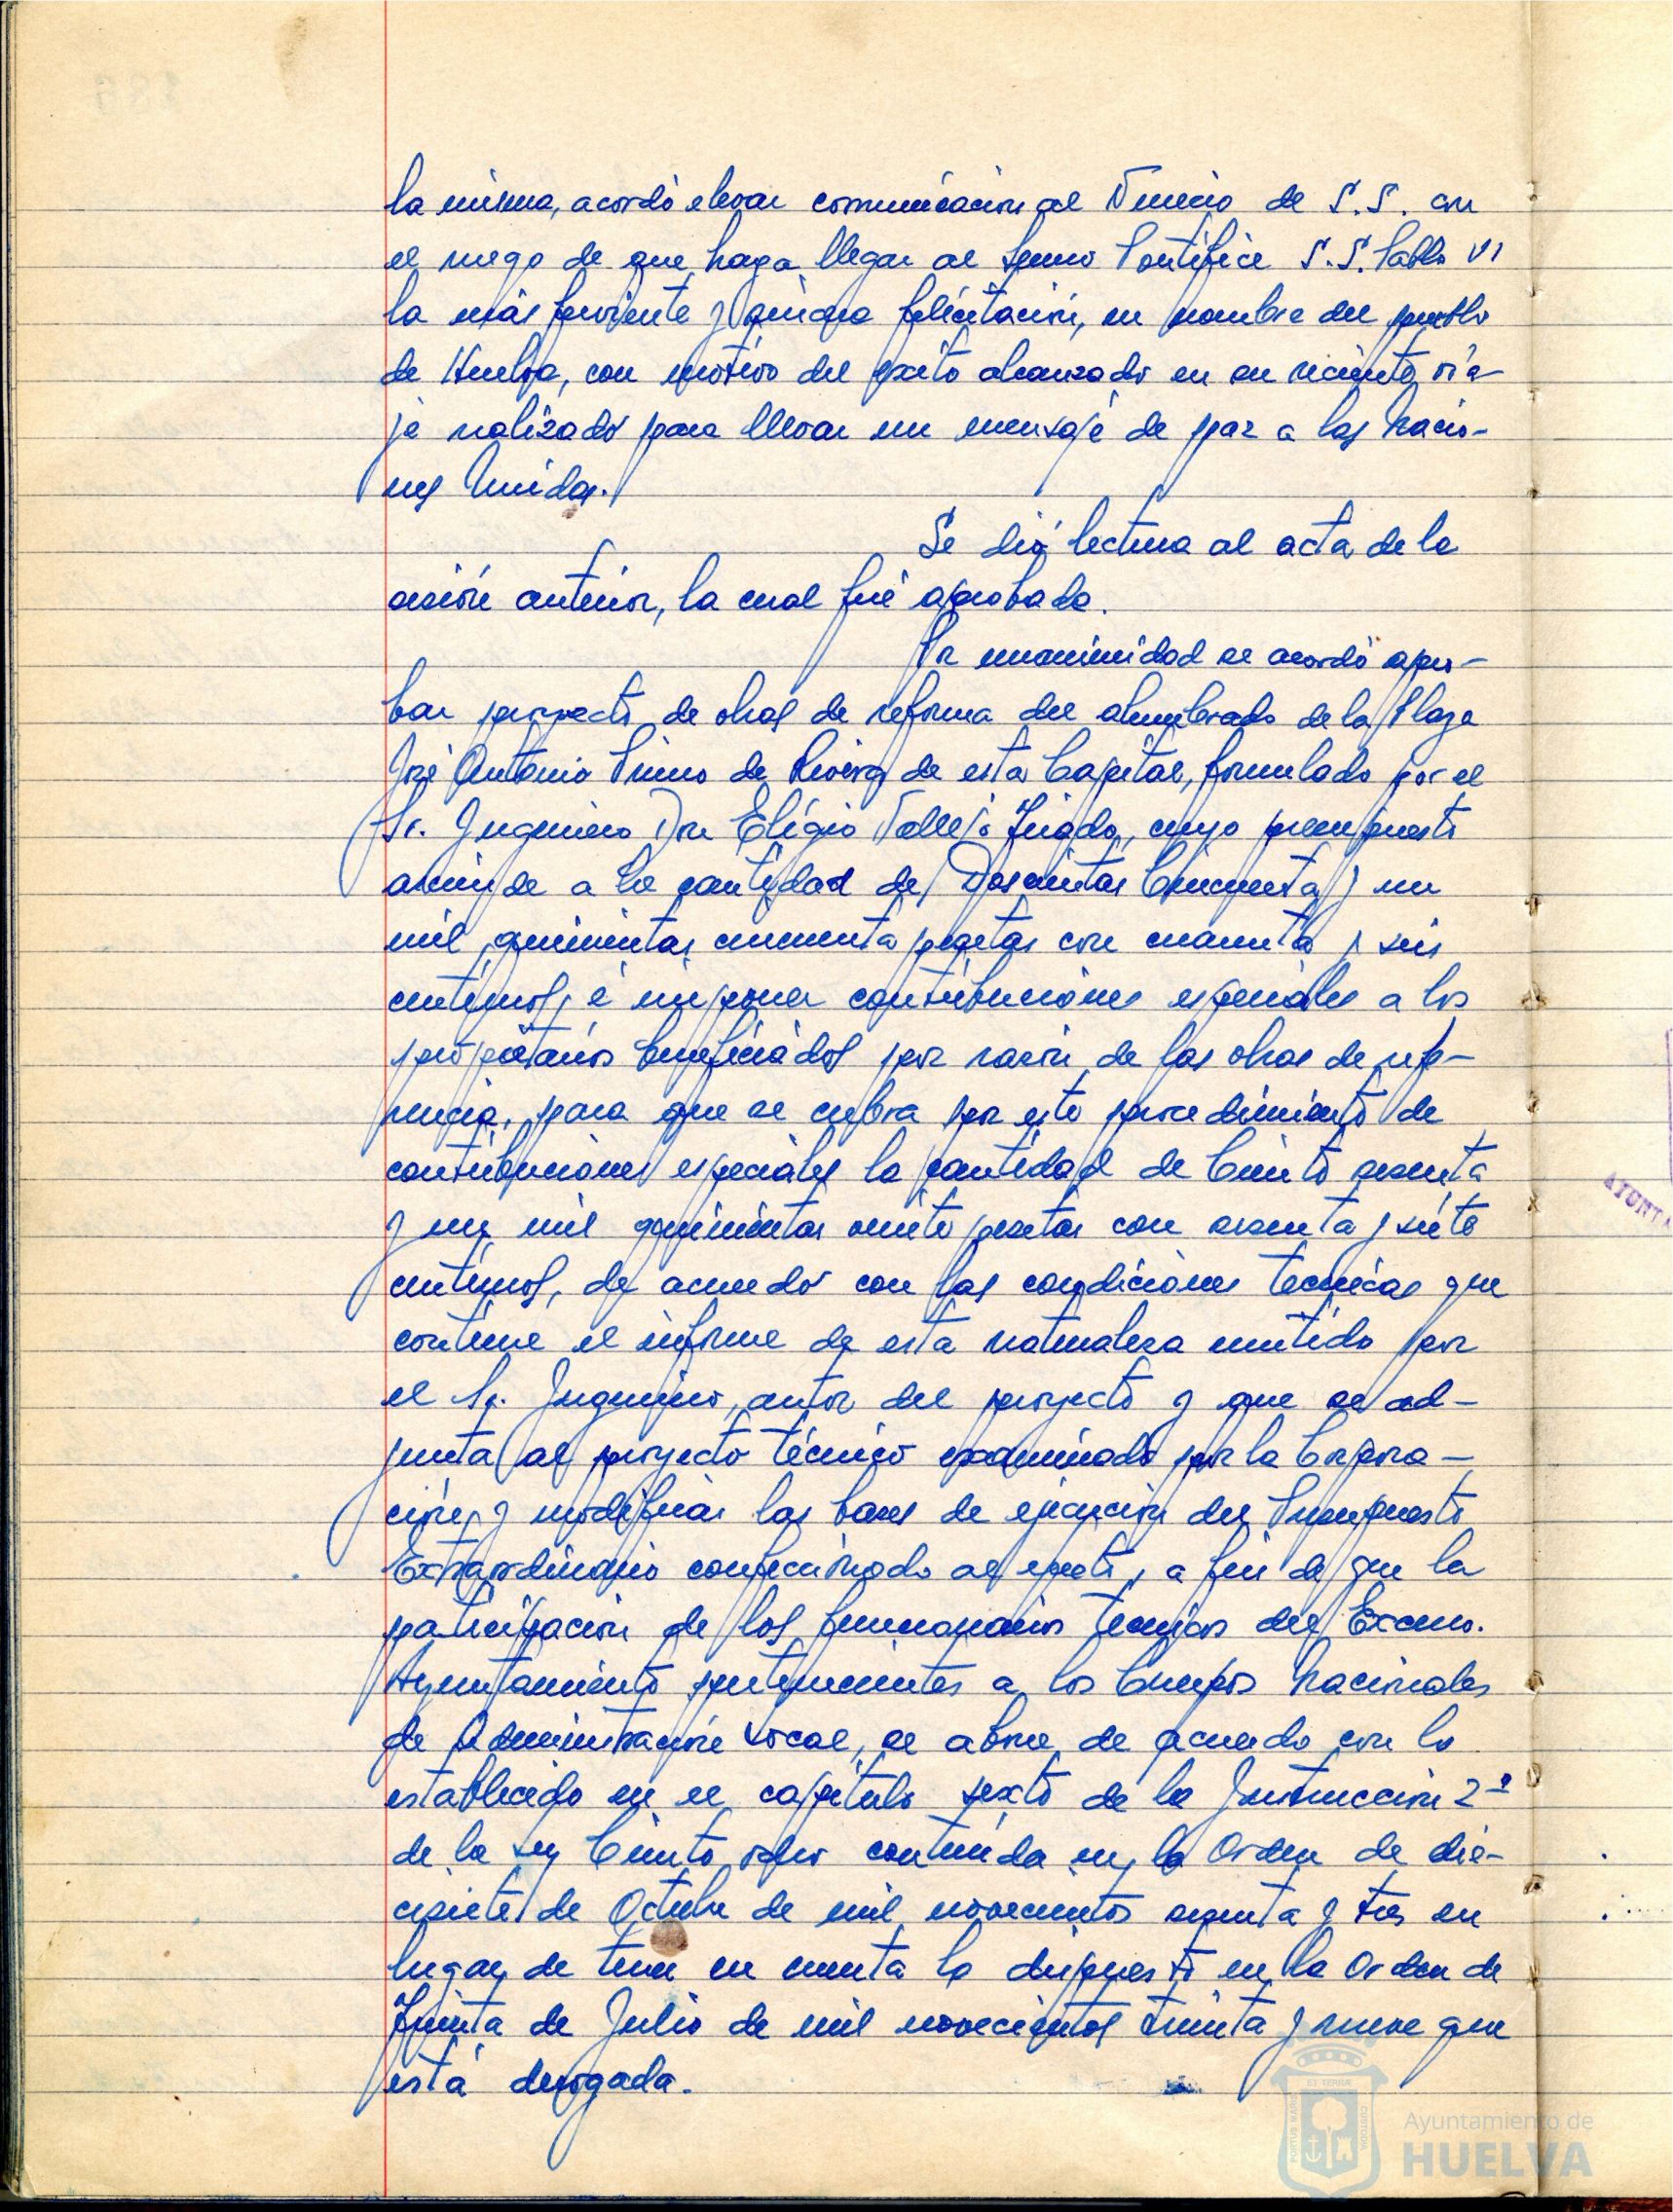 la misma, acordó elevar comunicación al Nuncio de S.S. con
el ruego de que haga llegar al Sumo Pontífice S.S. Pablo VI
la más ferviente y sincera felicitación, en nombre del pueblo
de Huelva, con motivo del éxito alcanzado en su reciente via-
je realizado para llevar un mensaje de paz a las Nacio-
nes Unidas.
Se dió lectura al acta de la
sesión anterior, la cual fué aprobada.
Por unanimidad se acordó apro-
bar proyecto de obras de reforma del alumbrado de la Plaza
José Antonio Primo de Rivera de esta Capital, formulado por el
Sr. Ingeniero Don Eligio Vallejo Tirado, cuyo presupuesto
asciende a la cantidad de Doscientas Cincuenta y un
mil quinientas cincuenta pesetas con cuarenta y seis
centimos, e imponer contribuciones especiales a los
propietarios beneficiados por razón de las obras de refe-
rencia, para que se cubra por este procedimiento de
contribuciones especiales la cantidad de Ciento sesenta
y un mil quinientas veinte pesetas con sesenta y siete
centimos, de acuerdo con las condiciones técnicas que
contiene el informe de esta naturaleza emitido por
el Sr. Ingeniero, autor del proyecto y que se ad-
junta al proyecto técnico examinado por la Corpora-
ción, y modificar las bases de ejecución del Presupuesto
Extraordinario confeccionado al efecto, a fin de que la
participación de los funcionarios técnicos del Excmo.
Ayuntamiento pertenecientes a los Cuerpos Nacionales
de Administración Local, se abone de acuerdo con lo
establecido en el capítulo sexto de la Instrucción 2ª
de la Ley Ciento ocho contenida en la Orden de die-
cisiete de Octubre de mil novecientos sesenta y tres en
lugar de tener en cuenta lo dispuesto en la Orden de
Treinta de Julio de mil novecientos treinta y nueve que
está derogada.
AYUNTA
Ayuntamiento de
HUELVA